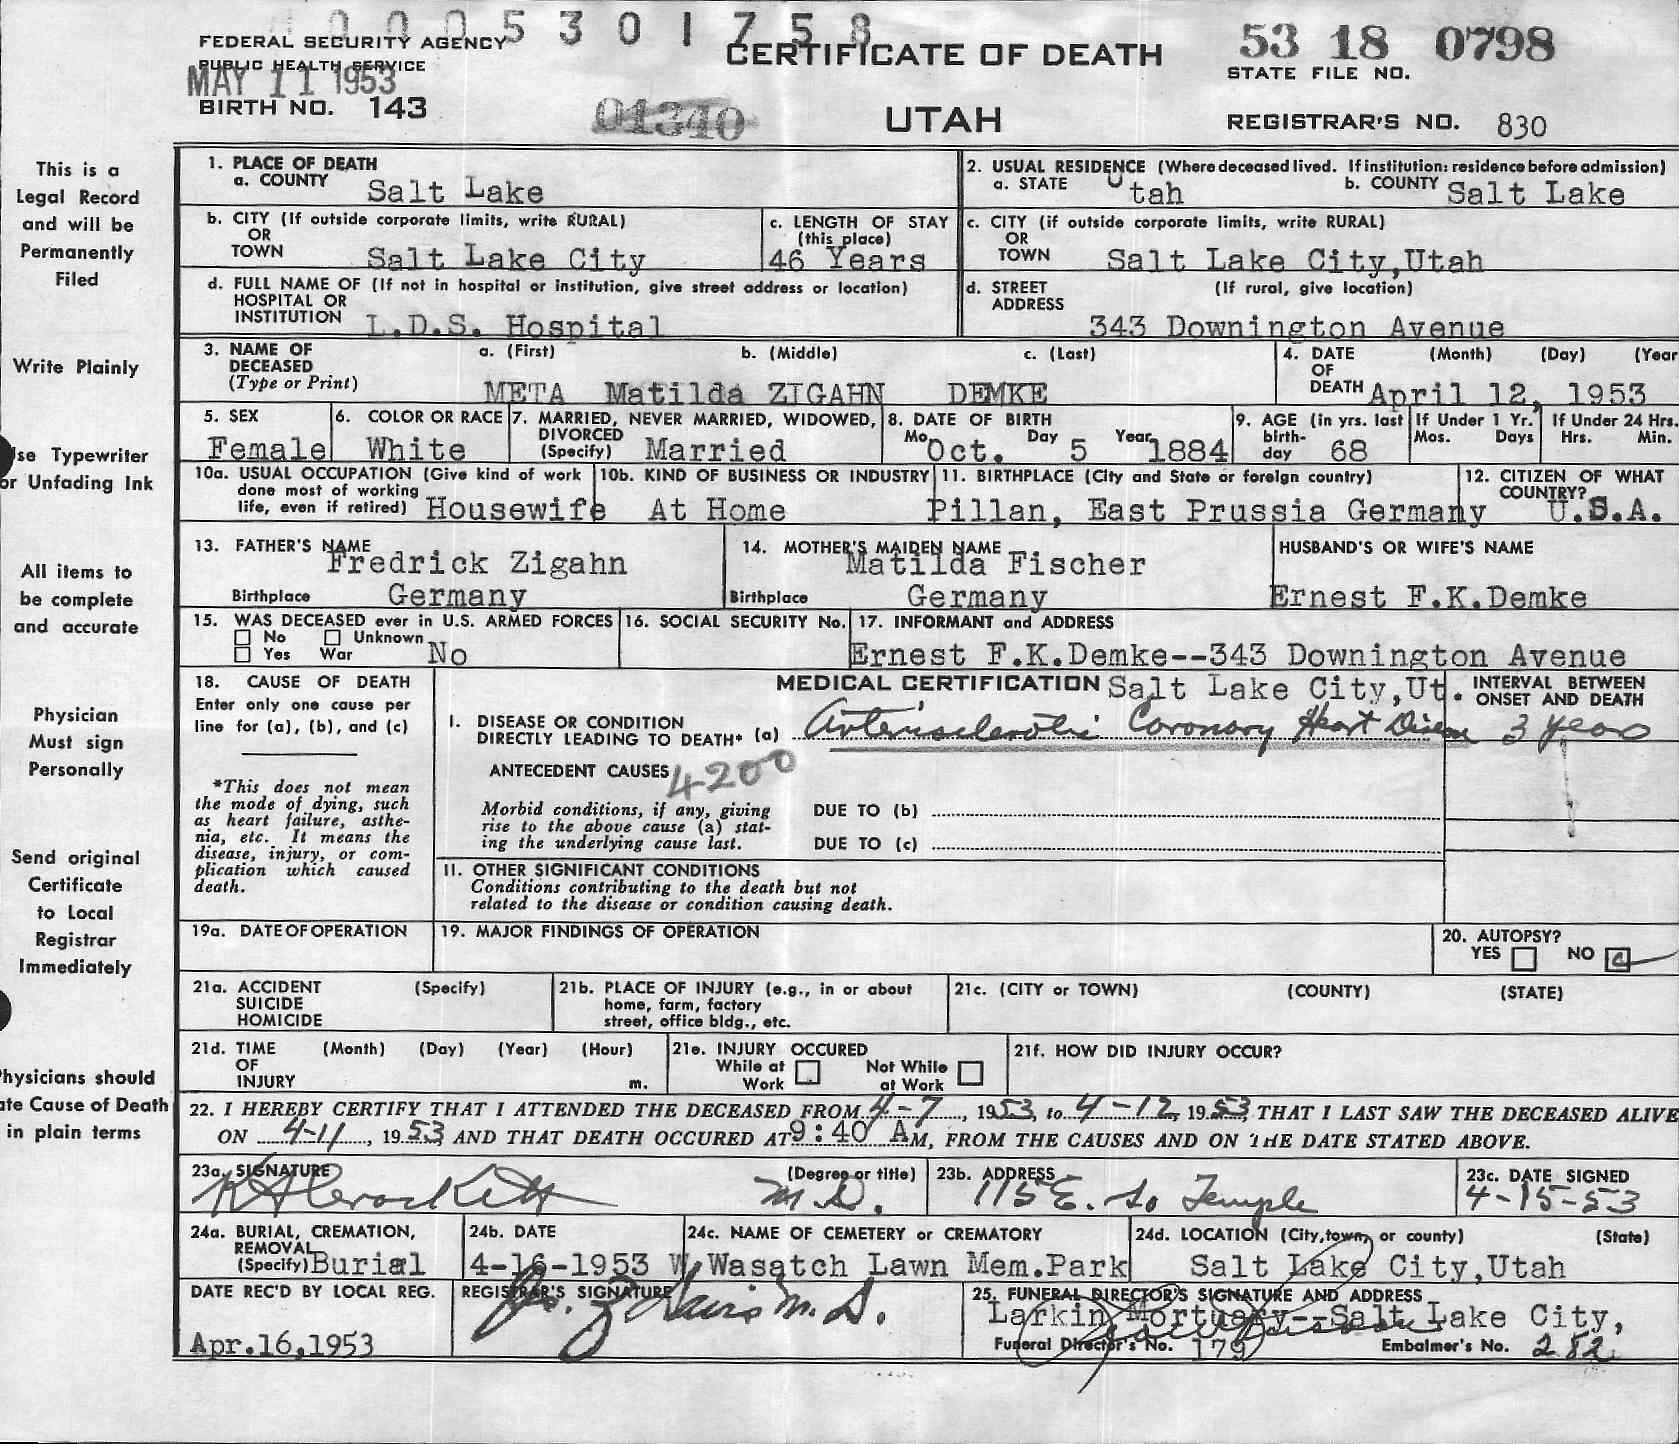 0005301758
FEDERAL SECURITY AGENCY
PUBLIC HEALTH SERVICE
MAY 11 1953
BIRTH NO. 143
01340
CERTIFICATE OF DEATH
UTAH
53 18 0798
STATE FILE NO.
REGISTRAR'S NO. 830
This is a
Legal Record
and will be
Permanently
Filed
Write Plainly
se Typewriter
or Unfading Ink
All items to
be complete
and accurate
Physician
Must sign
Personally
Send original
Certificate
to Local
Registrar
Immediately
hysicians should
ate Cause of Death
in plain terms
1. PLACE OF DEATH
a. COUNTY Salt Lake
2. USUAL RESIDENCE (Where deceased lived. If institution: residence before admission)
a. STATE Utah b. COUNTY Salt Lake
b. CITY (If outside corporate limits, write RURAL)
OR
TOWN Salt Lake City
c. LENGTH OF STAY
(this place)
46 Years
c. CITY (if outside corporate limits, write RURAL)
OR
TOWN Salt Lake City,Utah
d. FULL NAME OF (If not in hospital or institution, give street address or location)
HOSPITAL OR
INSTITUTION L.D.S. Hospital
d. STREET (If rural, give location)
ADDRESS
343 Downington Avenue
3. NAME OF a. (First) b. (Middle) c. (Last)
DECEASED
(Type or Print) META Matilda ZIGAHN DEMKE
4. DATE (Month) (Day) (Year
OF
DEATH April 12, 1953
5. SEX
Female
6. COLOR OR RACE
White
7. MARRIED, NEVER MARRIED, WIDOWED,
DIVORCED
(Specify) Married
8. DATE OF BIRTH
Mo. Day Year
Oct. 5 1884
9. AGE (in yrs. last
birth-
day 68
If Under 1 Yr.
Mos. Days
If Under 24 Hrs.
Hrs. Min.
10a. USUAL OCCUPATION (Give kind of work
done most of working
life, even if retired) Housewife
10b. KIND OF BUSINESS OR INDUSTRY
At Home
11. BIRTHPLACE (City and State or foreign country)
Pillan, East Prussia Germany
12. CITIZEN OF WHAT
COUNTRY?
U.S.A.
13. FATHER'S NAME
Fredrick Zigahn
Birthplace Germany
14. MOTHER'S MAIDEN NAME
Matilda Fischer
Birthplace Germany
HUSBAND'S OR WIFE'S NAME
Ernest F.K.Demke
15. WAS DECEASED ever in U.S. ARMED FORCES
No Unknown
Yes War No
16. SOCIAL SECURITY No.
17. INFORMANT and ADDRESS
Ernest F.K.Demke--343 Downington Avenue
18. CAUSE OF DEATH
Enter only one cause per
line for (a), (b), and (c)
*This does not mean
the mode of dying, such
as heart failure, asthe-
nia, etc. It means the
disease, injury, or com-
plication which caused
death.
MEDICAL CERTIFICATION Salt Lake City,Ut.
INTERVAL BETWEEN
ONSET AND DEATH
I. DISEASE OR CONDITION
DIRECTLY LEADING TO DEATH* (a) Arteriosclerotic Coronary Heart Disease 3 years
ANTECEDENT CAUSES 4200
Morbid conditions, if any, giving
rise to the above cause (a) stat-
ing the underlying cause last.
DUE TO (b)
DUE TO (c)
II. OTHER SIGNIFICANT CONDITIONS
Conditions contributing to the death but not
related to the disease or condition causing death.
19a. DATE OF OPERATION
19. MAJOR FINDINGS OF OPERATION
20. AUTOPSY?
YES NO
21a. ACCIDENT (Specify)
SUICIDE
HOMICIDE
21b. PLACE OF INJURY (e.g., in or about
home, farm, factory
street, office bldg., etc.
21c. (CITY or TOWN) (COUNTY) (STATE)
21d. TIME (Month) (Day) (Year) (Hour)
OF
INJURY m.
21e. INJURY OCCURED
While at Not While
Work at Work
21f. HOW DID INJURY OCCUR?
22. I HEREBY CERTIFY THAT I ATTENDED THE DECEASED FROM 4-7, 1953, to 4-12, 1953, THAT I LAST SAW THE DECEASED ALIVE
ON 4-11, 1953 AND THAT DEATH OCCURED AT 9:40 AM, FROM THE CAUSES AND ON THE DATE STATED ABOVE.
23a. SIGNATURE (Degree or title)
Crockett M.D.
23b. ADDRESS
115 E. So Temple
23c. DATE SIGNED
4-15-53
24a. BURIAL, CREMATION,
REMOVAL
(Specify) Burial
24b. DATE
4-16-1953
24c. NAME OF CEMETERY or CREMATORY
W Wasatch Lawn Mem.Park
24d. LOCATION (City, town, or county) (State)
Salt Lake City,Utah
DATE REC'D BY LOCAL REG.
Apr.16,1953
REGISTRAR'S SIGNATURE
Davis M.D.
25. FUNERAL DIRECTOR'S SIGNATURE AND ADDRESS
Larkin Mortuary--Salt Lake City,
Funeral Director's No. 179 Embalmer's No. 282